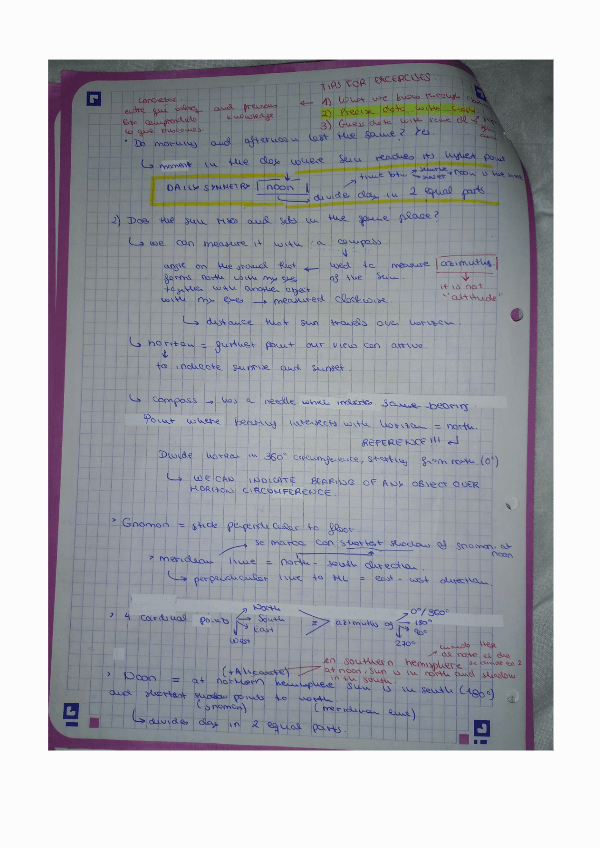 TIPS FOR EXCERCISES
1) What we know through
2) Precise data with
3) Guess data with
and previous
knowledge
• Do morning and afternoon last the same? Yes
↳ moment in the day where sun reaches its highest point
DAILY SYMMETRY noon
time btw sunrise sunset → noon is
divides day in 2 equal parts
2) Does the sun rises and sets in the same place?
↳ we can measure it with a compass
angle on the ground that ← used to measure azimuths
forms north with my eyes of the sun.
together with another object
with my eyes → measured clockwise.
it is not
"altitude"
↳ distance that sun travels over horizon.
↳ horizon = furthest point our view can arrive.
to indicate sunrise and sunset.
↳ compass → has a needle which indicates same bearing.
Point where bearing intersects with horizon = north.
REFERENCE!!!
Divide horizon in 360° circumference, starting from north (0°)
↳ WE CAN INDICATE BEARING OF ANY OBJECT OVER
HORIZON CIRCUMFERENCE.
> Gnomon = stick perpendicular to floor
se marca con shortest shadow of gnomon at
noon
> meridian line = north - south direction.
↳ perpendicular line to ML = east - west direction.
> 4 cardinal points North South East West = azimuths of 0°/360° 180° 90° 270°
en southern hemisphere
at noon, sun is in north and shadow
in the south
(+Alicante)
> Noon = at northern hemisphere sun is in south (180°)
and shortest shadow points to north
(gnomon) (meridian line)
↳ divides day in 2 equal parts.